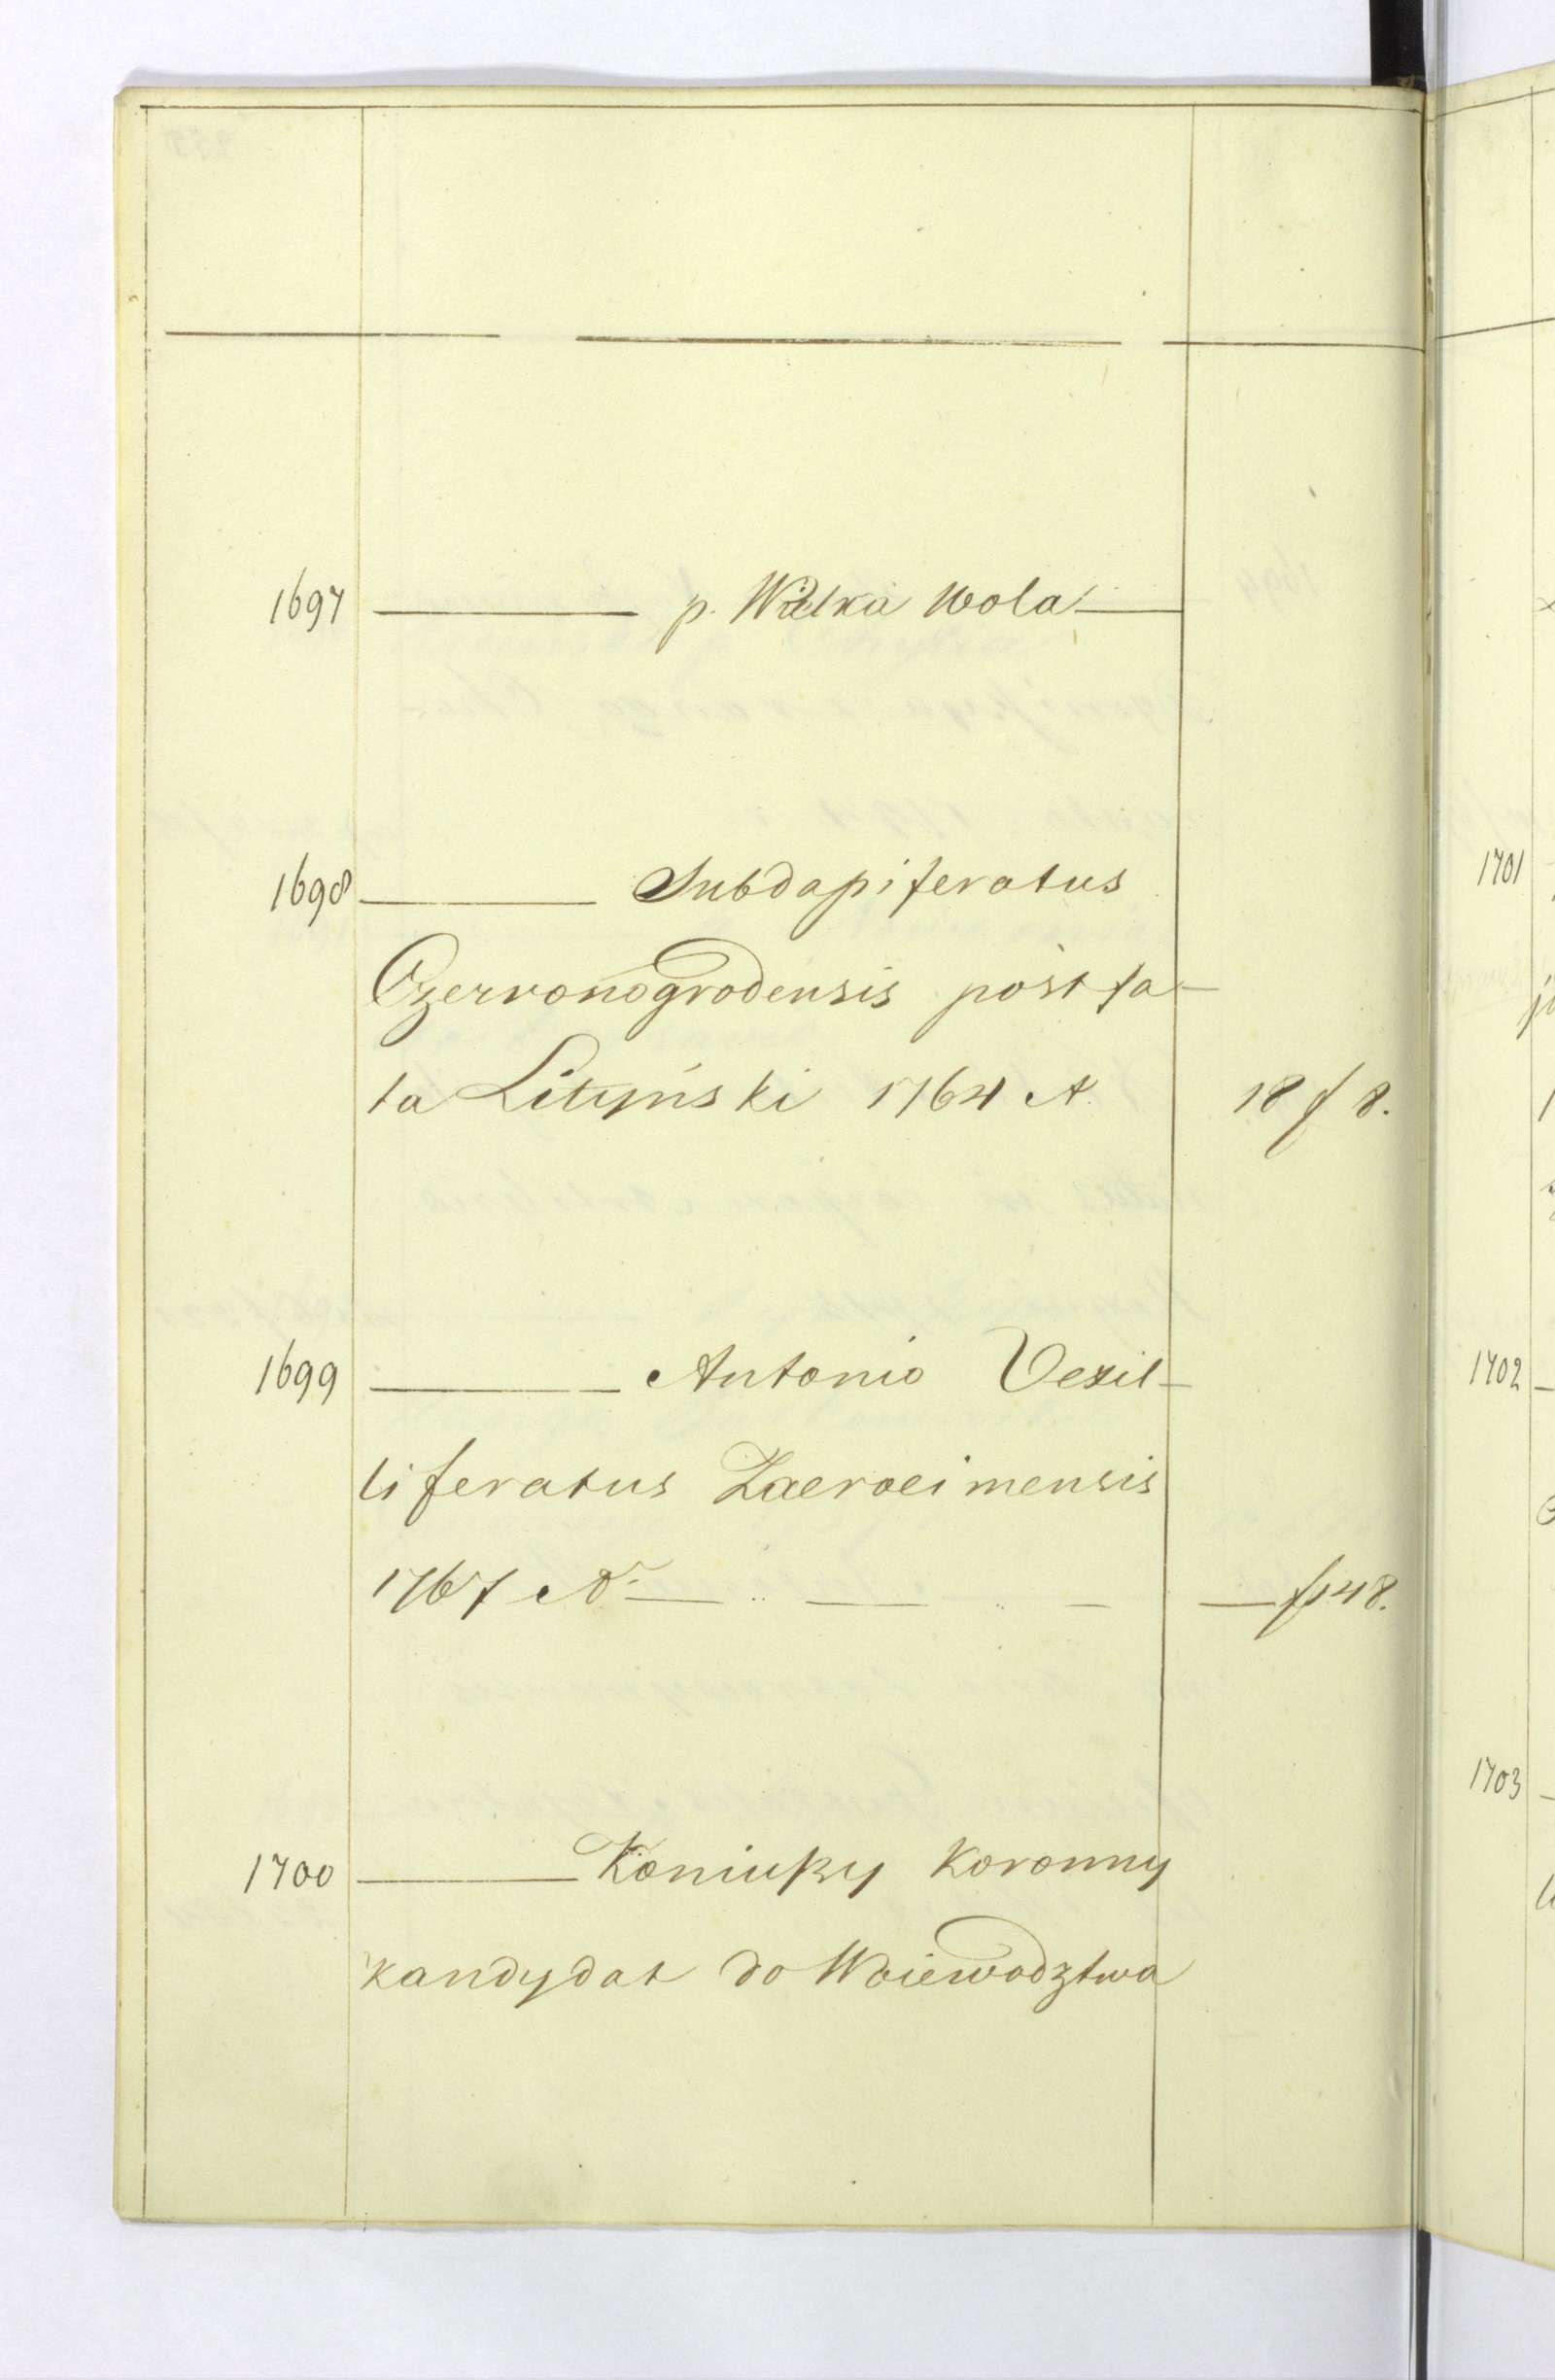 1697 ——— p. Wielka Wola —
1698 ——— Subdapiferatus
Czerwonogrodensis post fa-
ta Lityński 1764 A. 18 f 8.
1699 ——— Antonio Vexil-
liferatus Zacrocimensis
1767 Ao — .. — .. — — f 148.
1700 ——— Koniuszy Koronny
kandydat do Woiewodztwa
1701
1702
1703